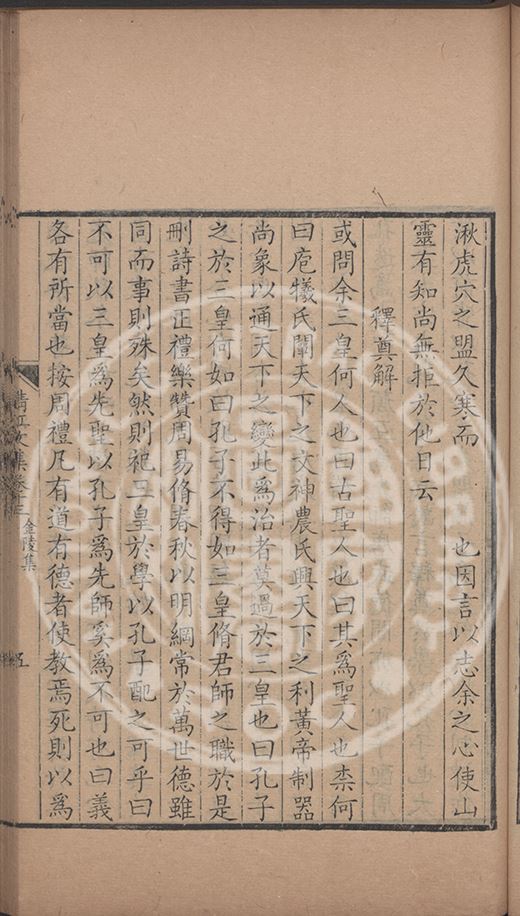 湫虎穴之盟久寒而　　也因言以志余之心使山
靈有知尚無拒於他日云
釋奠解
或問余三皇何人也曰古聖人也曰其爲聖人也柰何
曰庖犧氏闡天下之文神農氏興天下之利黃帝制器
尚象以通天下之變此爲治者莫過於三皇也曰孔子
之於三皇何如曰孔子不得如三皇脩君師之職於是
刪詩書正禮樂贊周易脩春秋以明綱常於萬世德雖
同而事則殊矣然則祀三皇於學以孔子配之可乎曰
不可以三皇爲先聖以孔子爲先師奚爲不可也曰義
各有所當也按周禮凡有道有德者使教焉死則以爲
清江文集卷十三 金陵集 五